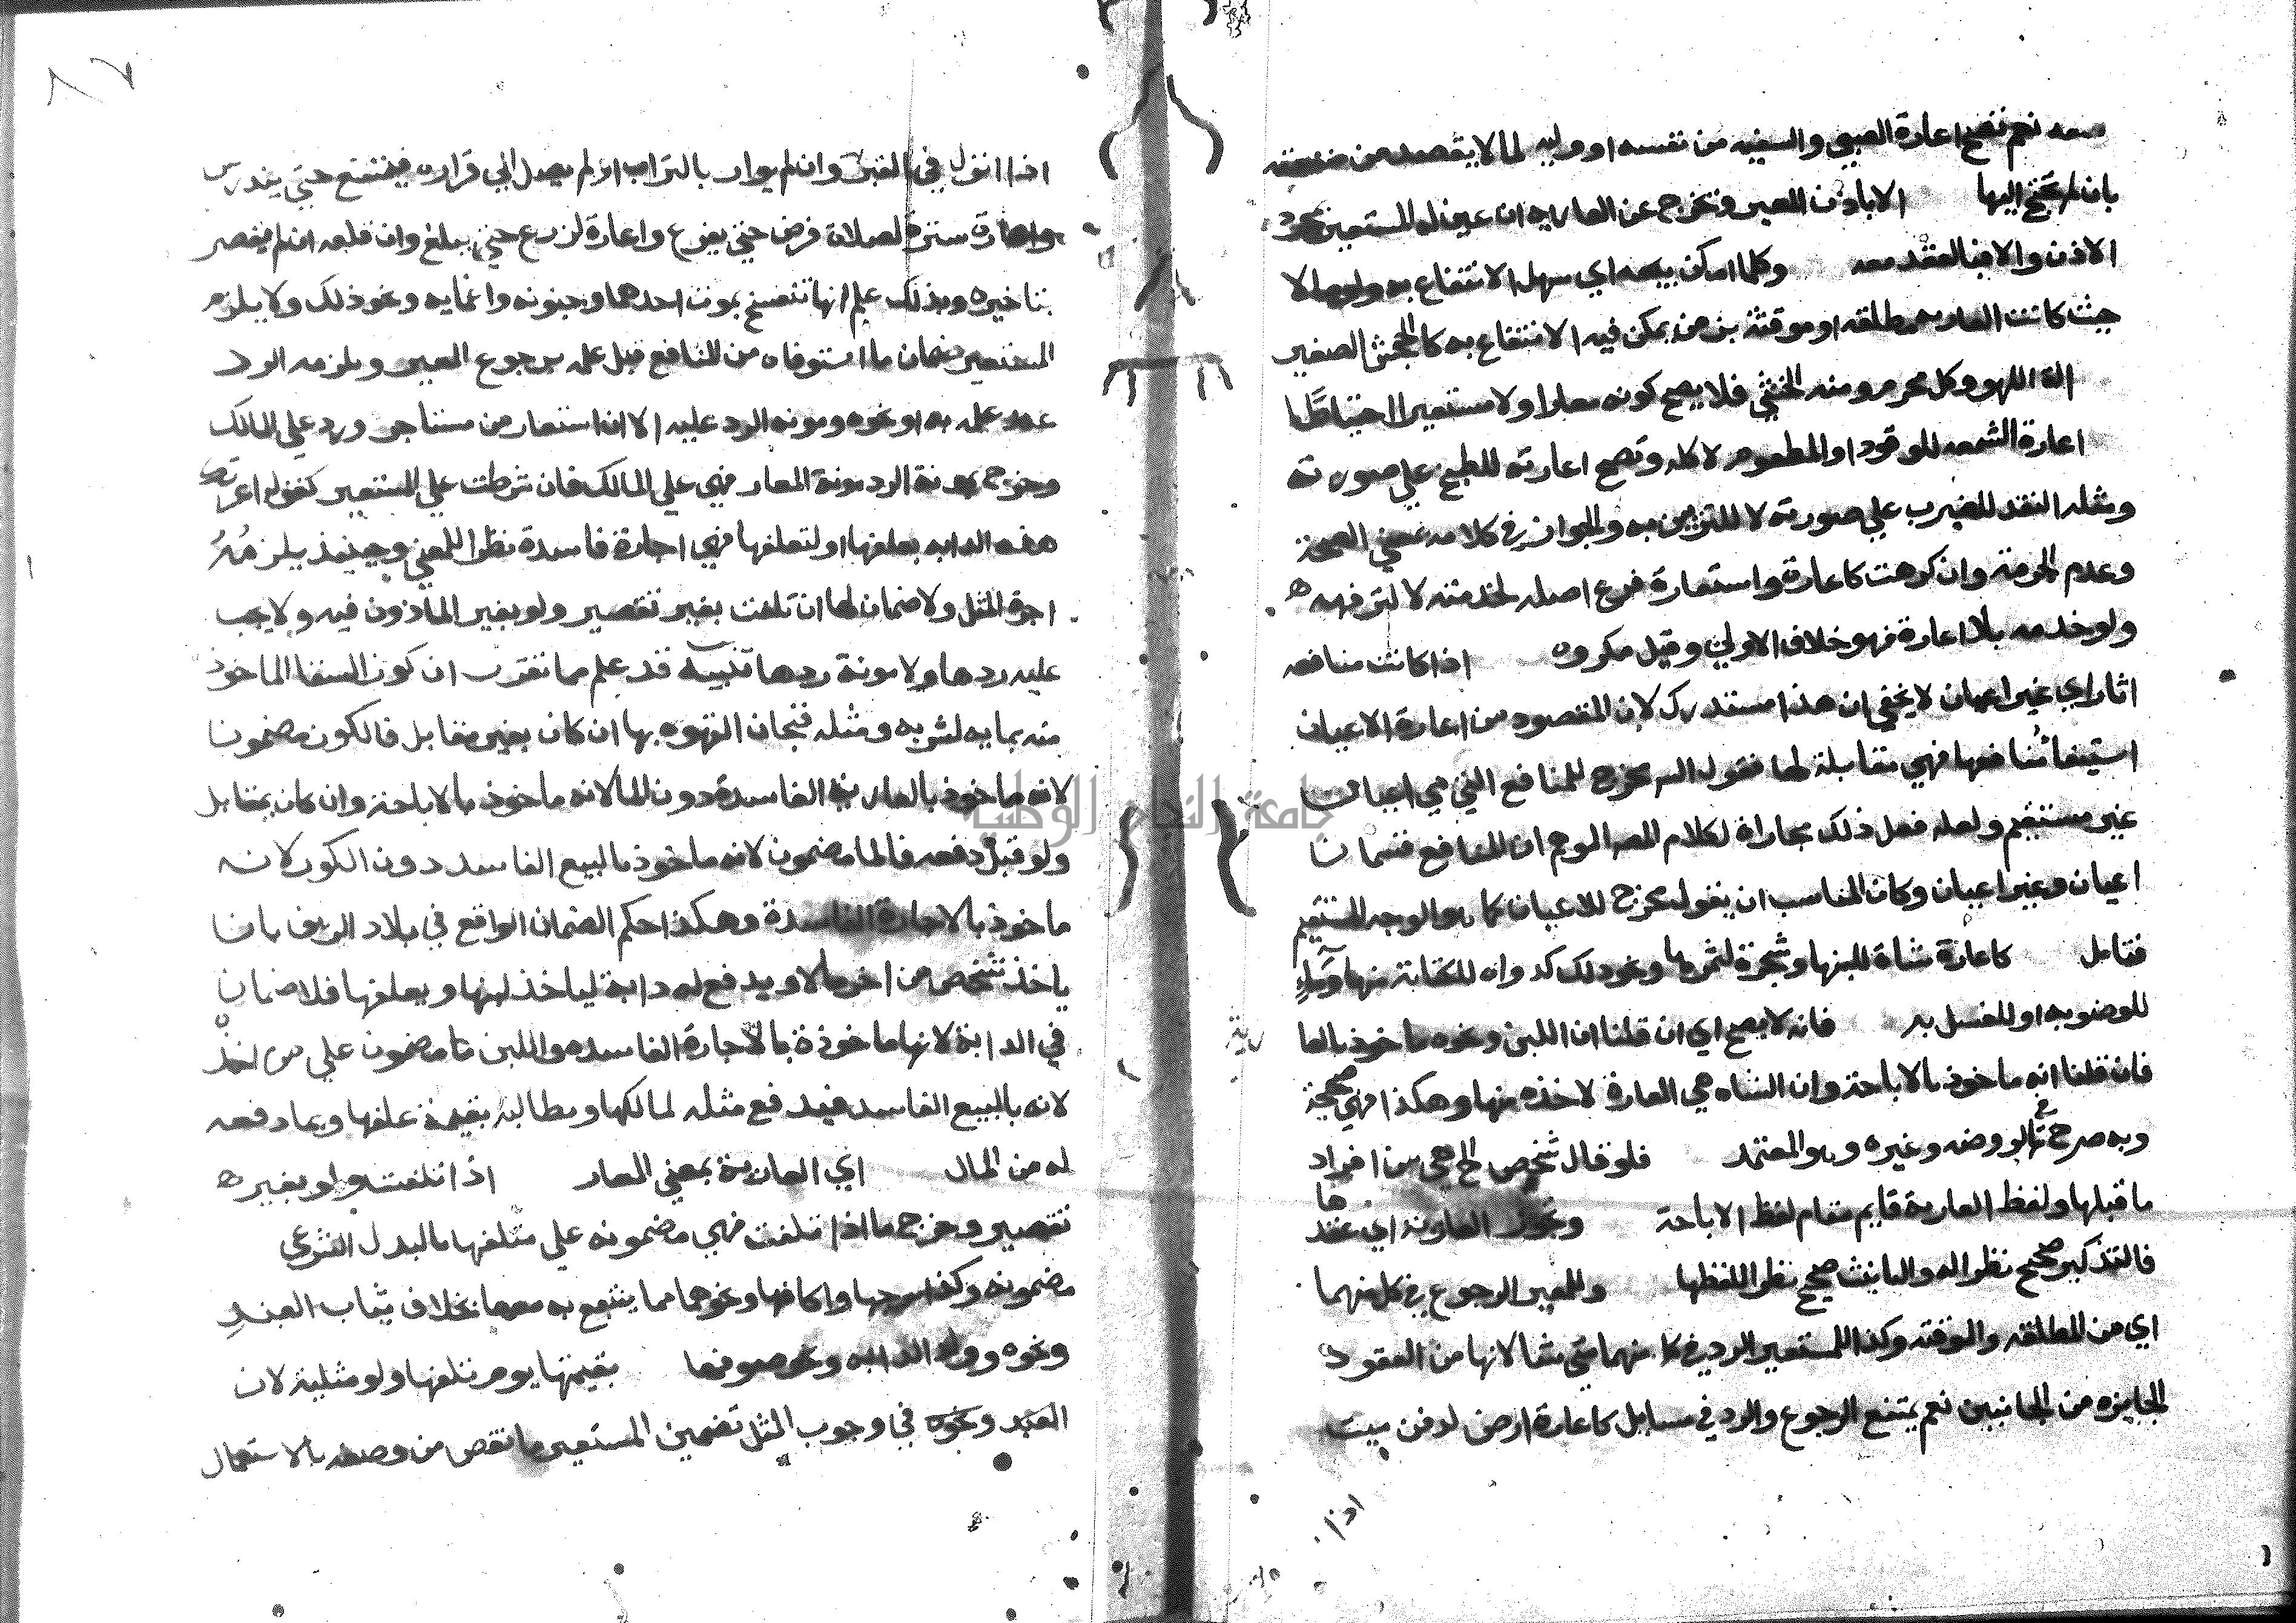 معه نعم تصح اعارة الصبي والسفيه من نفسه او وليه لما لا يقصد من منفعته
بان لم يحتج اليها الا باذن المعير وتخرج عن العاريه ان عين له المستعير بمجرد
الاذن والا فبالعقد معه وكلما امكن بيعه اي سهل الانتفاع به ولو مالا
حيث كانت العاريه مطلقه او موقتة بزمن يمكن فيه الانتفاع به كالجحش الصغير
الة اللهو وكل محرم ومنه الخنثي فلا يصح كونه معارا ولا مستعيرا احتياطًا
اعارة الشمعه للوقود او المطعوم لاكله وتصح اعارته للطبع علي صورته
ومثله النقد للضرب علي صورته لا للتزين به والجواز في كلامه بمعني الصحة
وعدم الحرمة وان كرهت كاعارة واستعارة فرع اصله لخدمته لا لترفهه
ولو خدمه بلا اعارة فهو خلاف الاولي وقيل مكروه اذا كانت منافعه
اثارا اي غير اعيان لا يخفي ان هذا مستدرك لان المقصود من اعارة الاعيان
استيفاء منافعها فهي مقابلة لها فقول الـه تخرج المنافع التي هي اعيانا
غير مستقيم ولعله فعل ذلك مجاراة لكلام المصـ الموهم ان المنافع قسمان
اعيان وغير اعيان وكان المناسب ان يقول مخرج للاعيان كما هو الوجه المستقيم
فتامل كاعارة شاة للبنها وشجرة لثمرها ونحو ذلك كدواه للكتابة منها وماءٍ
للوضو به او للغسل به فانه لا يصح اي ان قلنا ان اللبن ونحوه ماخوذ بالعا
رية
فان قلنا انه ماخوذ بالاباحة وان الشاه هي المعارة لاخذه منها وهكذا فهي صحيحة
وبه صرح في الروضه وغيره وهو المعتمد فلو قال شخص الخ هي من افراد
ما قبلها ولفظ العارية قايم مقام لفظ الاباحة وتجوز العارية اي عقدها
فالتذكير صحيح نظرا له والتانيث صحيح نظرا للفظها وللمعير الرجوع في كل منهما
اي من المطلقه والموقته وكذا للمستعير الرد في كل منهما متي شا لانها من العقود
الجايزه من الجانبين نعم يمتنع الرجوع والرد في مسايل كاعارة ارض لدفن ميت
اذا
٨٧
اذا انزل في القبر وان لم يوار بالتراب او لم يصل الي قراره فيمتنع حتي يندرس
واعارة سترة لصلاة فرض حتي يفرغ واعارة لزرع حتي يبلغ وان قلعه ان لم يقصر
بتاخيره وبذلك علم انها تنفسخ بموت احدهما وجنونه واغمايه ونحو ذلك ولا يلزم
المستعير ضمان ما استوفاه من المنافع قبل علمه برجوع المعير ويلزمه الرد
عند علمه به او نحوه ومونه الرد عليه الا ان استعار من مستاجر ورد علي المالك
وخرج بمونة الرد مونة المعار فهي علي المالك فان شرطت علي المستعير كقوله اعرتك
هذه الدابه بعلفها او لتعلفها فهي اجارة فاسدة نظرا للمعني وحينيذ يلزمُهُ
اجرة المثل ولا ضمان لها ان تلفت بغير تقصير ولو بغير الماذون فيه ولا يجب
عليه ردها ولا مونة ردها تنبيه قد علم مما تقرر ان كوز السقا الماخوذ
منه بمايه لشربه ومثله فنجان القهوه بها ان كان بغير مقابل فالكوز مضمون
لانه ماخوذ بالعارية الفاسدة دون الما لانه ماخوذ بالاباحة وان كان بمقابل
ولو قبل دفعه فالما مضمون لانه ماخوذ بالبيع الفاسد دون الكوز لانه
ماخوذ بالاجارة الفاسدة وهكذا حكم الضمان الواقع في بلاد الريف بان
ياخذ شخص من اخر مالا ويدفع له دابة لياخذ لبنها ويعلفها فلا ضمان
في الدابة لانها ماخوذة بالاجارة الفاسده واللبن مضمون علي من اخذ
لانه بالبيع الفاسد فيدفع مثله لمالكها ويطالبه بقيمة علفها وبما دفعه
له من المال اي العارية بمعني المعار اذا تلفت ولو بغير
تقصير وخرج ما اذا تلفت فهي مضمونه علي متلفها بالبدل الشرعي
مضمونه وكذا سرجها واكافها ونحوهما مما ينتفع به معها بخلاف ثياب العبدِ
ونحوه وولد الدابه ونحو صوفها بقيمتها يوم تلفها ولو مثلية لان
العبد ونحوه في وجوب المثل تضمين المستعير ما نقص من وصفه بالاستعمال
جامعة النجاح الوطنية